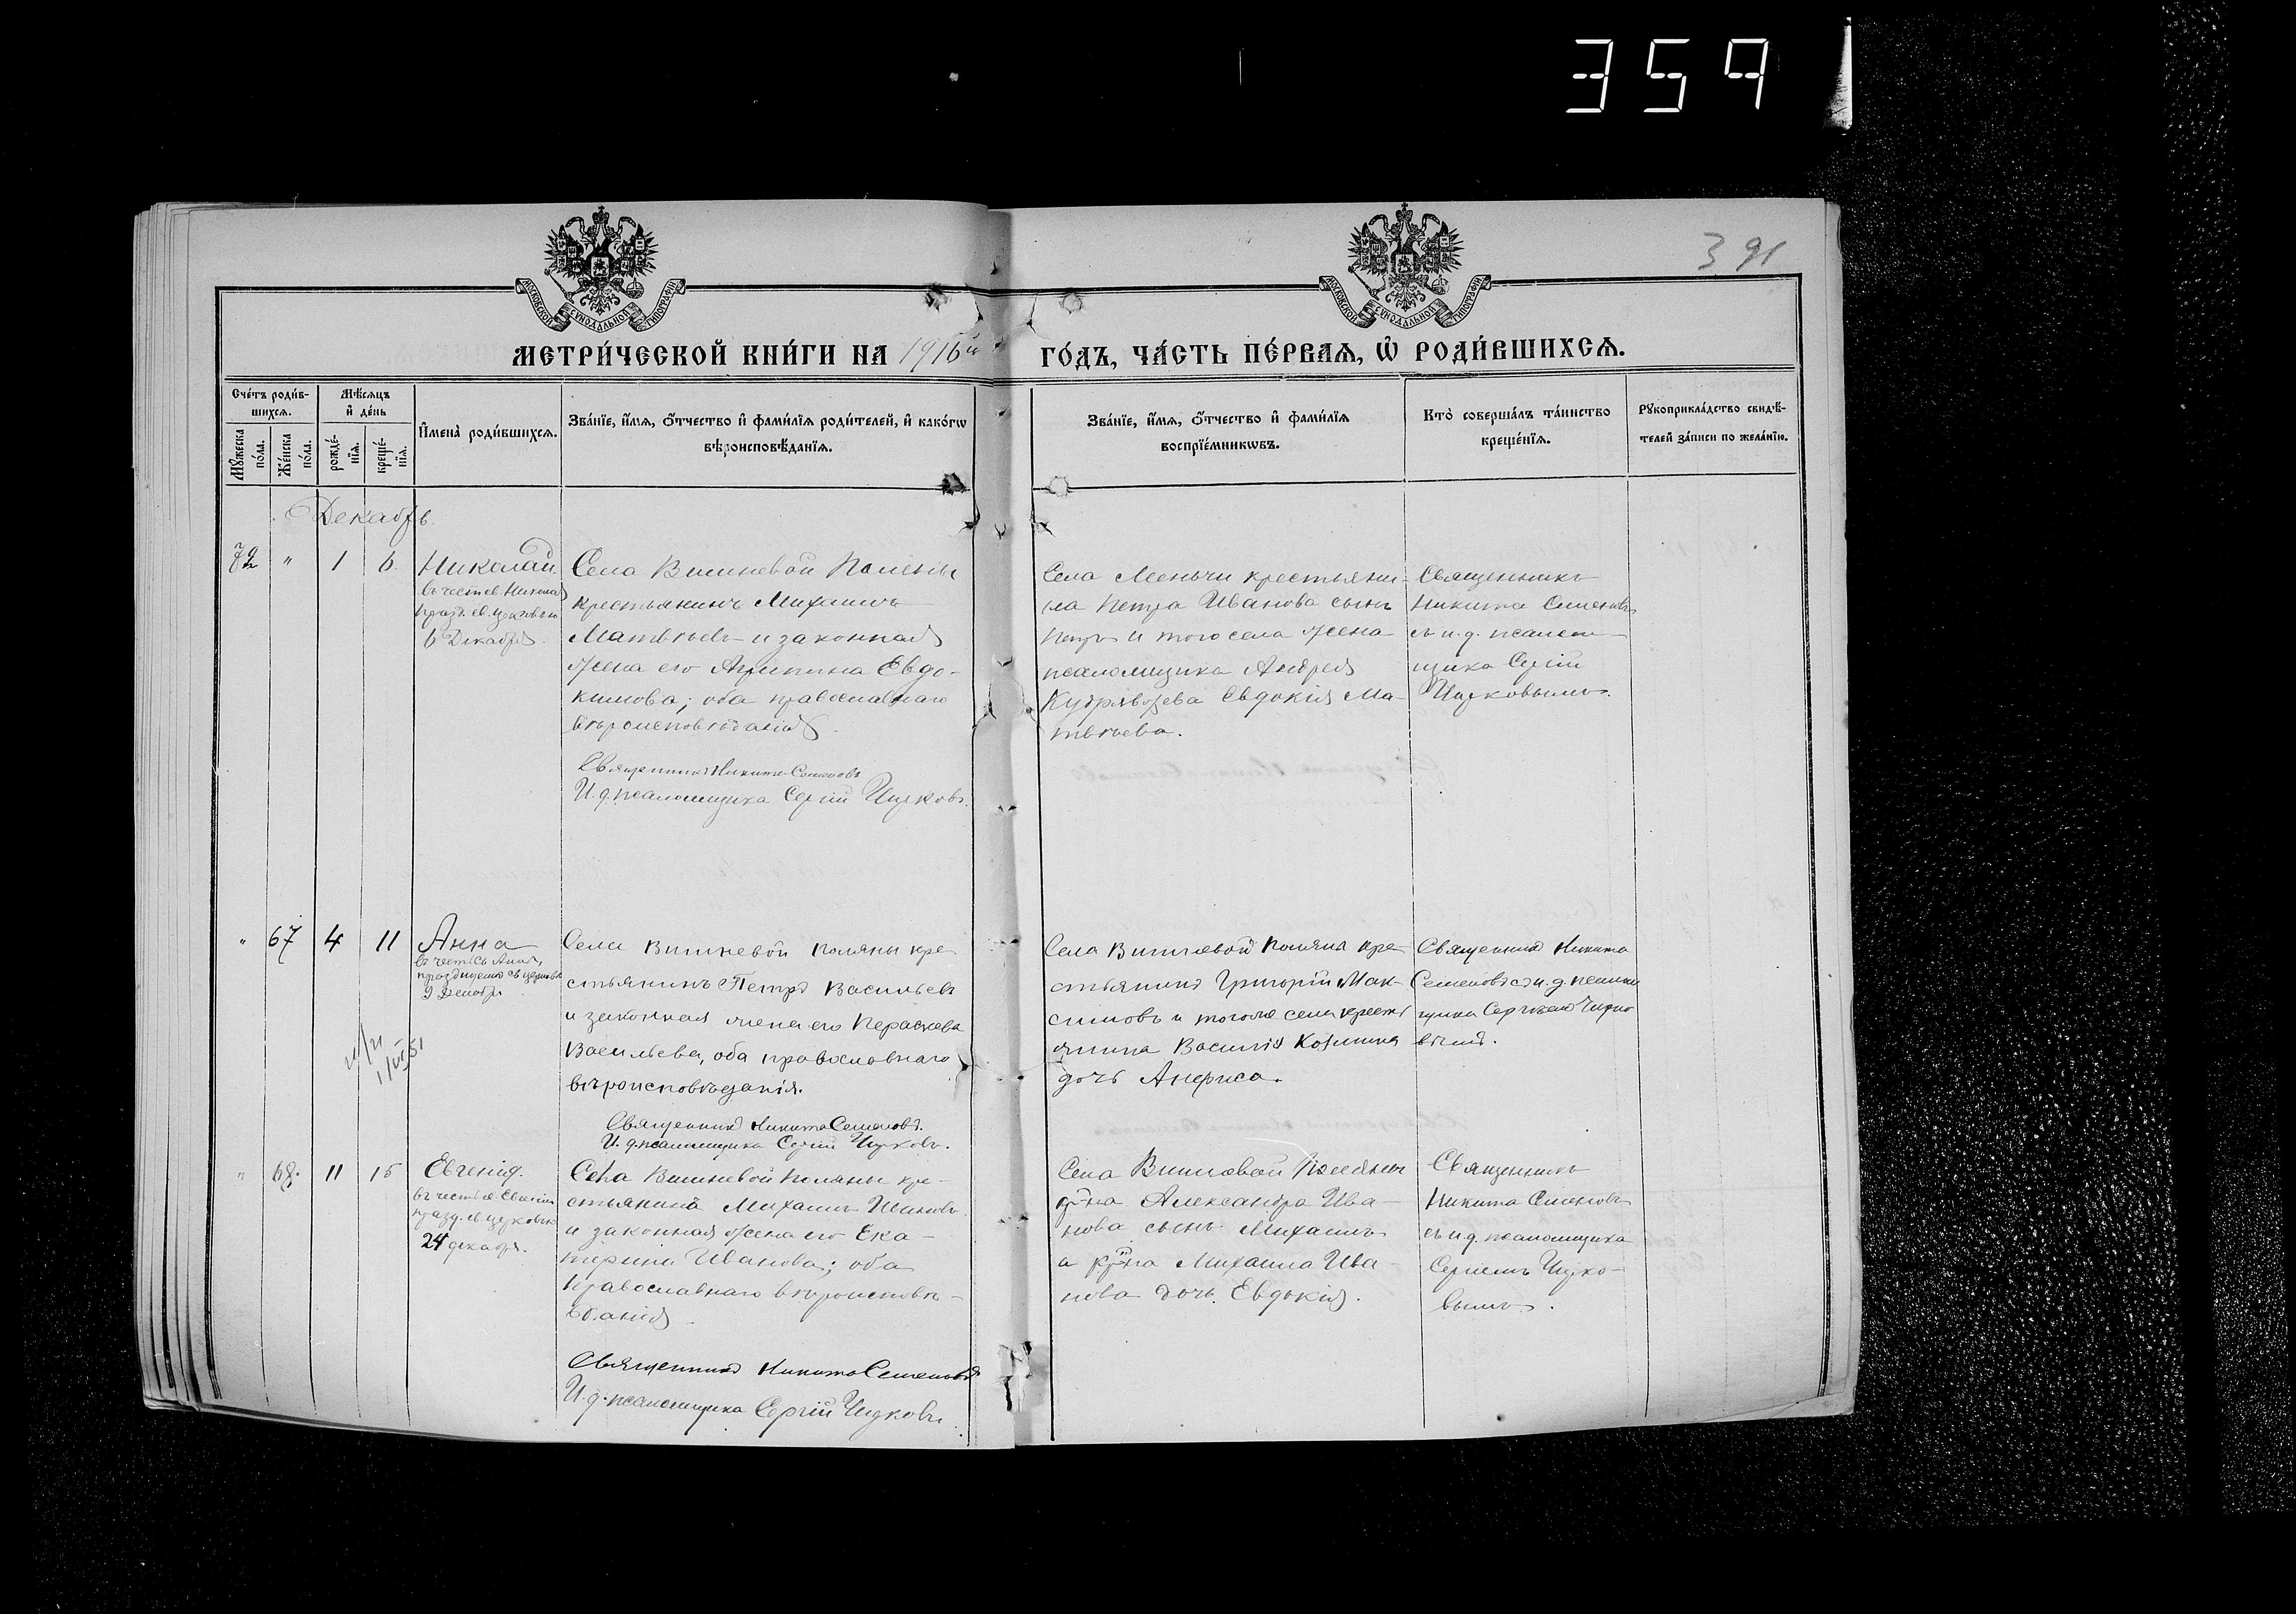 359
391
МОСКОВСКОЙ СУНОДАЛЬНОЙ ТИПОГРАФІИ
МОСКОВСКОЙ СУНОДАЛЬНОЙ ТИПОГРАФІИ
МЕТРИ́ЧЕСКОЙ КНИ́ГИ НА 1916й ГО́ДЪ, ЧА́СТЬ ПЕ́РВАѦ, Ѡ҆ РОДИ́ВШИХСѦ.
Сче́тъ роди́в-
шихсѧ.
Мѣ́сѧцъ
и҆ де́нь
Мꙋ́жеска по́ла.
Же́нска по́ла.
рожде́-
нїѧ.
креще́-
нїѧ.
И҆мена̀ роди́вшихсѧ.
Зва́нїе, и҆́мѧ, ѻ҆́тчество и҆ фами́лїѧ роди́телей, и҆ како́гѡ
вѣроисповѣ́данїѧ.
Зва́нїе, и҆́мѧ, ѻ҆́тчество и҆ фами́лїѧ
воспрїе́мникѡвъ.
Кто̀ соверша́лъ та́инство
креще́нїѧ.
Рꙋкоприкла́дство свидѣ́-
телей за́писи по жела́нїю.
Декабрь.
72 " 1 6.
Николай
въ честь св. Никола
празд. св. церковью
6 Декабря.
Села Вишневой Поляны
крестьянинъ Михаилъ
Матвѣевъ и законная
жена его Агрипина Евдо-
кимова; оба православнаго
вѣроисповѣданія.
Священникъ Никита Семеновъ
И. д. псаломщика Сергій Чирковъ.
Села Меньчи крестьяни-
на Петра Иванова сынъ
Петръ и того села жена
псаломщика Андрея
Кудрявцева Евдокія Ма-
твѣева.
Священникъ
Никита Семеновъ
съ и. д. псалом-
щика Сергій
Чирковымъ.
" 67 4 11
Анна
въ честь св. Анны,
празднуемой св. церковью
9 Декабря
Села Вишневой Поляны кре-
стьянинъ Петръ Васильевъ
и законная жена его Параскева
Васильева, оба православнаго
вѣроисповѣданія.
Священникъ Никита Семеновъ.
И. д. псаломщика Сергій Чирковъ.
Села Вишневой Поляны кре-
стьянинъ Григорій Мак-
симовъ и того же села кресть
янина Василія Козьмина
дочь Анфиса.
Священникъ Никита
Семеновъ съ и. д. псалом
щика Сергѣемъ Чирко
вымъ.
" 68. 11 15
Евгенія.
въ честь св. Евгеніи
празд. св. церковью
24 декабря.
Села Вишневой Поляны кре-
стьянинъ Михаилъ Ивановъ
и законная жена его Ека-
терина Иванова; оба
православнаго вѣроисповѣ-
данія.
Священникъ Никита Семеновъ
И. д. псаломщика Сергій Чирковъ.
Села Вишневой Поляны
кр-на Александра Ива-
нова сынъ Михаилъ
и кр-на Михаила Ива-
нова дочь Евдокія.
Священникъ
Никита Семеновъ
съ и д. псаломщика
Сергіемъ Чирко-
вымъ.